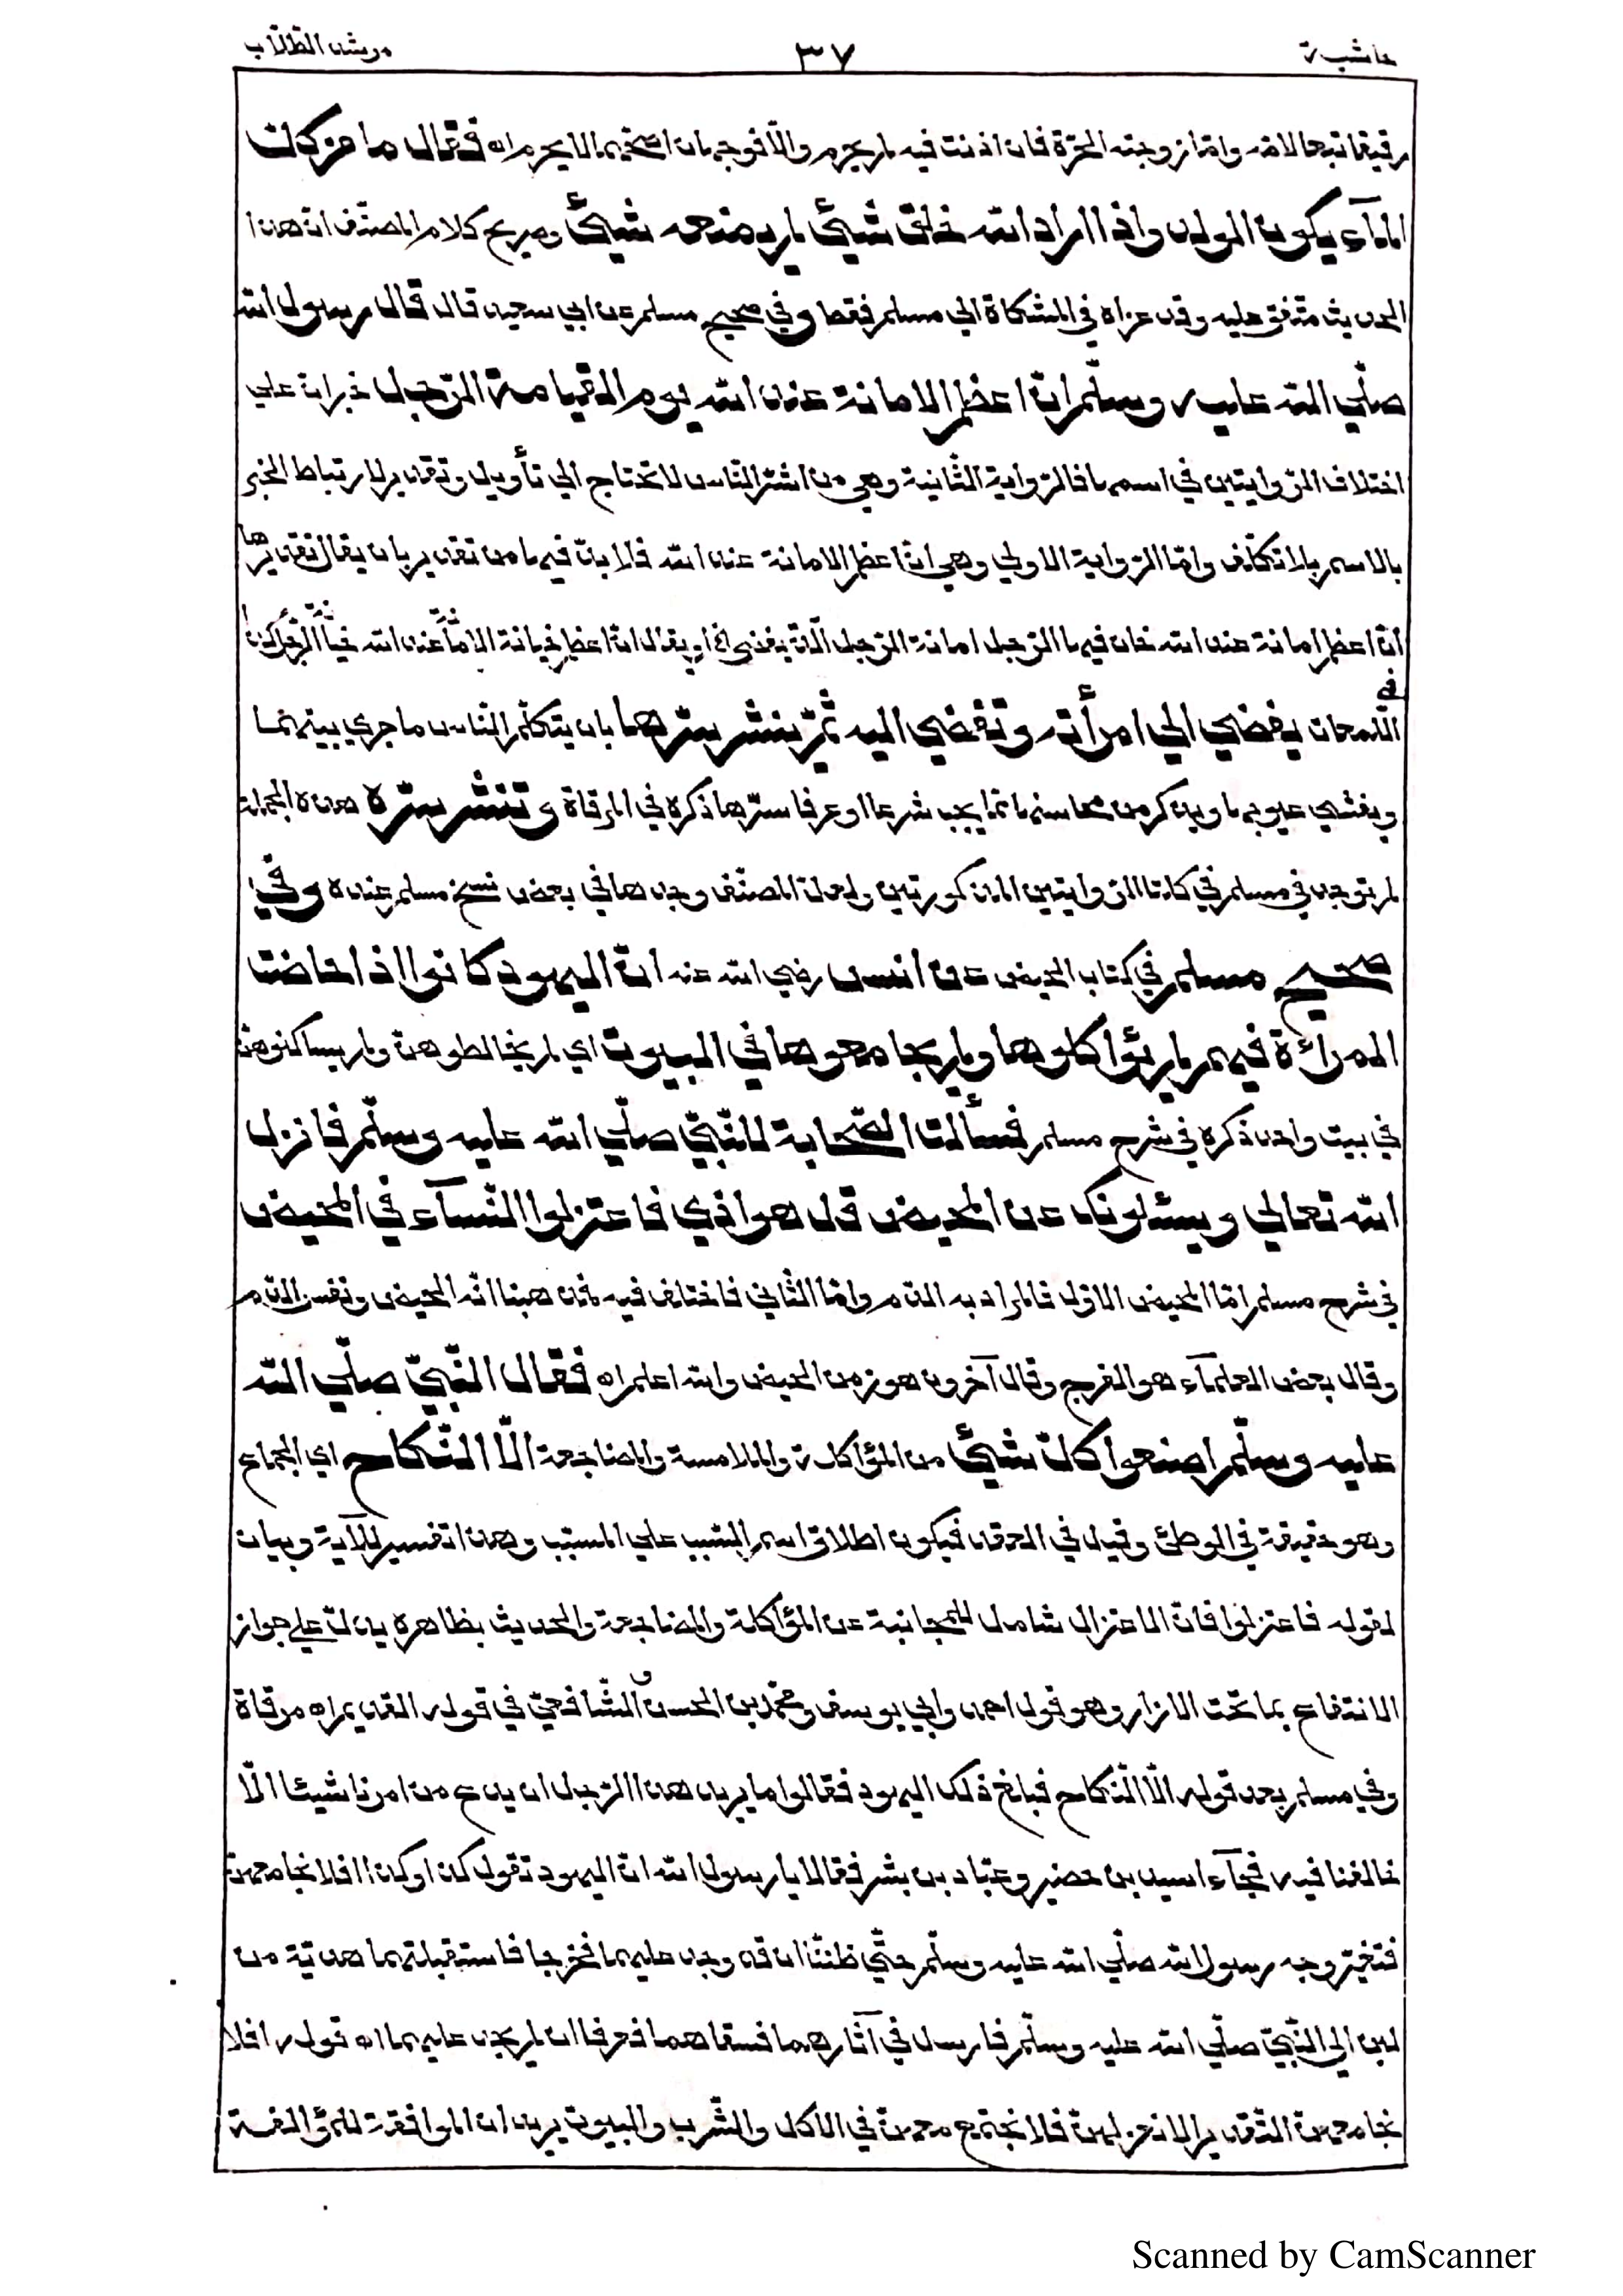 حاشية ٣٧ مرشد الطلاب
رقيقا تبعا لامه وامّا زوجته الحرّة فان اذنت فيه لم يحرم والّا فوجهان اصحّهما لا يحرم اه فقال ما من كلّ
المآء يكون الولد واذا اراد الله خلق شيئ لم يمنعه شيئ وصريح كلام المصنّف انّ هذا
الحديث متّفق عليه وقد عزاه في المشكاة الي مسلم فقط وفي صحيح مسلم عن ابي سعيد قال قال رسول الله
صلّي الله عليه وسلّم انّ اعظم الامانة عند الله يوم القيامة الرّجل خبر انّ علي
اختلاف الرّوايتين في اسمها فالرّواية الثّانية وهي من اشرّ النّاس لا تحتاج الي تأويل وتقدير لارتباط الخبر
بالاسم بلا تكلّف وامّا الرّواية الاولي وهي انّ اعظم الامانة عند الله فلا بدّ فيها من تقدير بان يقال تقديرها
انّ اعظم امانة عند الله خان فيها الرّجل امانة الرّجل الّذي يفضي الخ او يقال انّ اعظم خيانة الامانة عند الله خيانة الرّجل كذا
في
اللّمعات يفضي الي امرأته وتفضي اليه ثمّ ينشر سرّها بان يتكلّم للنّاس ما جري بينهما
ويفشي عيوبها ويذكر من محاسنها ما يجب شرعا او عرفا سترها ذكره في المرقاة وتنشر سرّه هذه الجملة
لم توجد في مسلم في كلتا الرّوايتين المذكورتين ولعلّ المصنّف وجدها في بعض نسخ مسلم عنده وفي
صحيح مسلم في كتاب الحيض عن انس رضي الله عنه انّ اليهود كانوا اذا حاضت
المرأة فيهم لم يؤاكلوها ولم يجامعوها في البيوت اي لم يخالطوهنّ ولم يساكنوهنّ
في بيت واحد ذكره في شرح مسلم فسألت الصّحابة للنّبيّ صلّي الله عليه وسلّم فانزل
الله تعالي ويسئلونك عن المحيض قل هو اذي فاعتزلوا النّسآء في المحيض
في شرح مسلم امّا المحيض الاوّل فالمراد به الدّم وامّا الثّاني فاختلف فيه فمذهبنا انّه الحيض ونفس الدّم
وقال بعض العلمآء هو الفرج وقال آخرون هو زمن الحيض والله اعلم اه فقال النّبيّ صلّي الله
عليه وسلّم اصنعوا كلّ شيئ من المؤاكلة والملامسة والمضاجعة الّا النّكاح اي الجماع
وهو حقيقة في الوطئ وقيل في العقد فيكون اطلاق اسم السّبب علي المسبّب وهذا تفسير للآية وبيان
لقوله فاعتزلوا فانّ الاعتزال شامل للمجانبة عن المؤاكلة والمضاجعة والحديث بظاهره يدلّ علي جواز
الانتفاع بما تحت الازار وهو قول احمد وابي يوسف ومحمّد بن الحسن والشّافعيّ في قوله القديم اه مرقاة
وفي مسلم بعد قوله الّا النّكاح فبلغ ذلك اليهود فقالوا ما يريد هذا الرّجل ان يدع من امرنا شيئا الّا
خالفنا فيه فجآء اسيد بن حضير وعبّاد بن بشر فقالا يا رسول الله انّ اليهود تقول كذا وكذا افلا نجامعهنّ
فتغيّر وجه رسول الله صلّي الله عليه وسلّم حتّي ظننّا ان قد وجد عليهما فخرجا فاستقبلهما هديّة من
لبن الي النّبيّ صلّي الله عليه وسلّم فارسل في آثارهما فسقاهما فعرفا ان لم يجد عليهما اه قوله افلا
نجامعهنّ التّقدير الا نعزلهنّ فلا نجتمع معهنّ في الاكل والشّرب والبيوت يريدان الموافقة للمؤالفة
Scanned by CamScanner